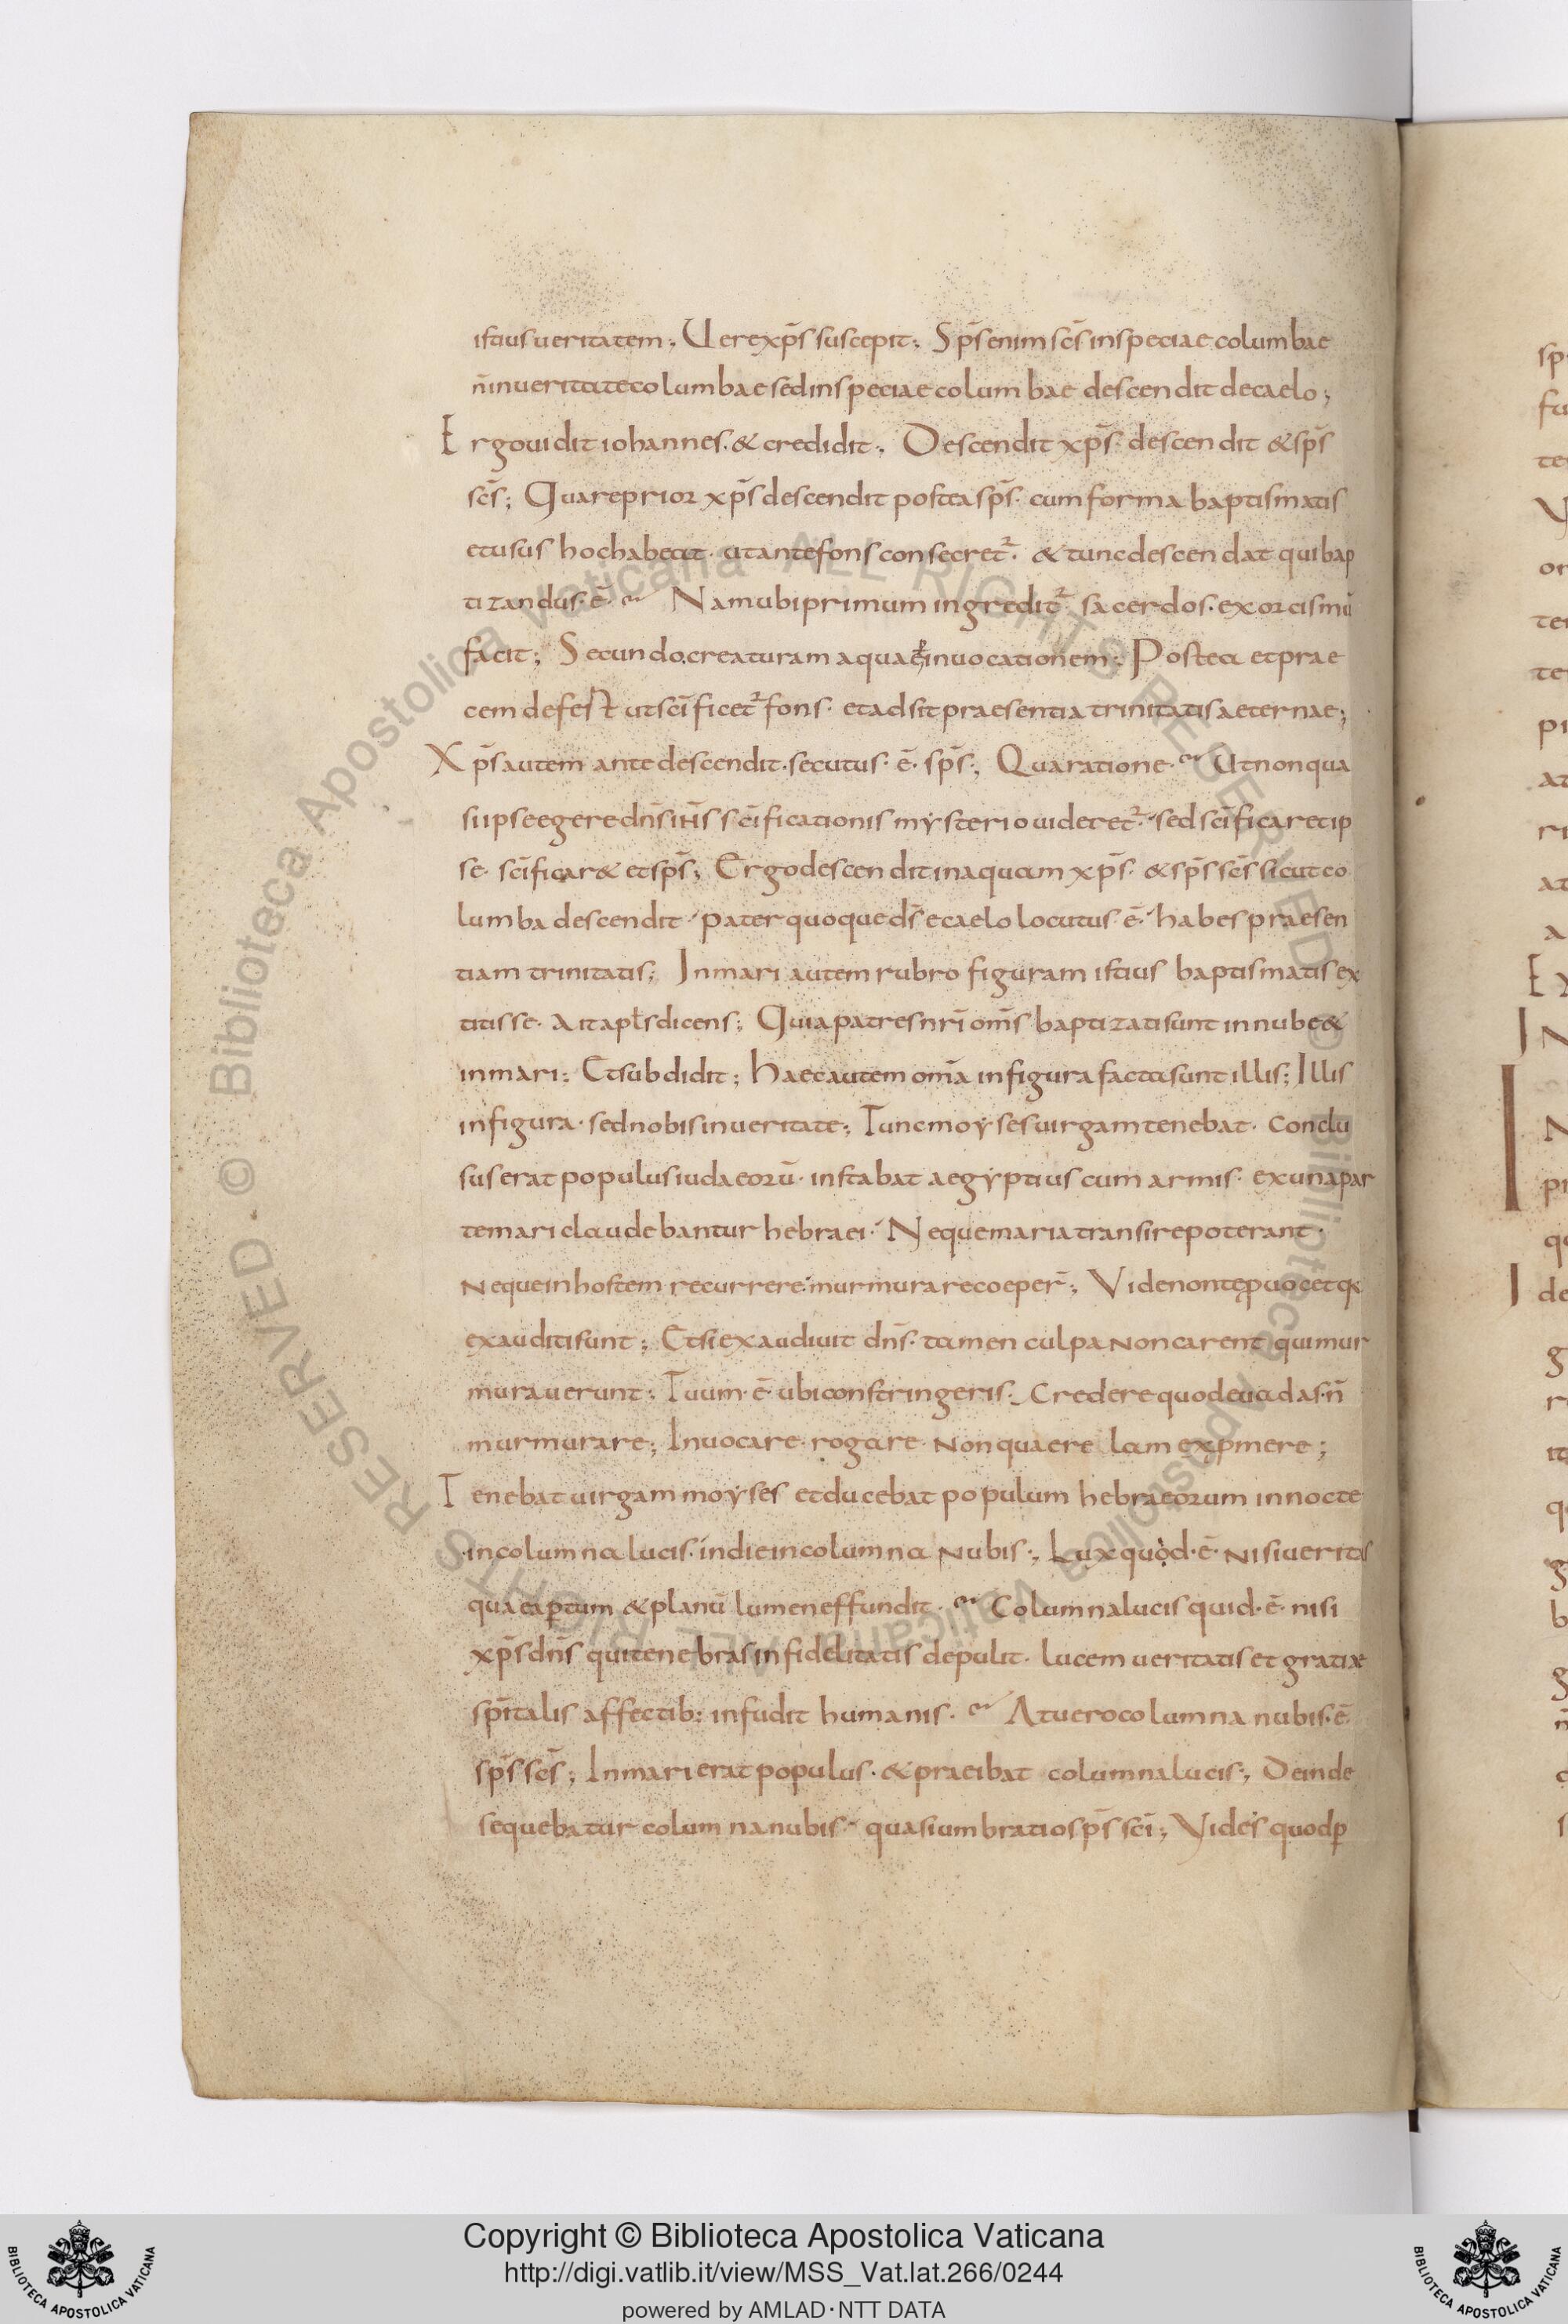 istius ueritatem; Uere xp̄s suscepit; Sp̄s enim sc̄s in speciae columbae
n̄ in ueritate columbae sed in speciae columbae descendit de caelo;
Ergo uidit iohannes· & credidit; Descendit xp̄s· descendit & sp̄s
sc̄s; Quare prior xp̄s descendit postea sp̄s· cum forma baptismatis
et usus hoc habeat· ut ante fons consecret᷑· & tunc descendat qui bap
tizandus· ē· Nam ubi primum ingredit᷑ sacerdos· exorcismū
facit; Secundo creaturam aquae inuocationem; Postea et prae
cem defert ut sc̄ificet᷑ fons· et adsit praesentia trinitatis aeternae;
Xp̄s autem ante descendit· secutus· ē· sp̄s; Qua ratione· Ut non qua
si ipse egere dn̄s ih̄s sc̄ificationis mysterio uideret᷑· sed sc̄ificaret ip
se· sc̄ificar& et sp̄s; Ergo descendit in aquam xp̄s· & sp̄s sc̄s sicut co
lumba descendit· pater quoque ds̄ e caelo locutus ē· habes praesen
tiam trinitatis; In mari autem rubro figuram istius baptismatis ex
titisse· ait apl̄s dicens; Quia patres nr̄i om̄s baptizati sunt in nube &
in mari; Et subdidit; haec autem om̄a in figura facta sunt illis; Illis
in figura· sed nobis in ueritate; Tunc moyses uirgam tenebat· Conclu
sus erat populus iudaeorū· instabat aegyptius cum armis· ex una par
te mari claudebantur hebraei· Neque maria transire poterant·
Neque in hostem recurrere murmurare coeper̄; Vide non te ꝓuocet q̄
exauditi sunt; Et si exaudiuit dn̄s· tamen culpa non carent qui mur
murauerunt; Tuum· ē· ubi constringeris· Credere quod euadas· n̄
murmurare; Inuocare· rogare· Non quaerelam exp̄mere;
Tenebat uirgam moyses et ducebat populum hebraeorum in nocte
in columna lucis· in die in columna nubis; Lux quod· ē· Nisi ueritas
qua eaptum & planū lumen effundit· Columna lucis quid· ē· nisi
xp̄s dn̄s qui tenebras infidelitatis depulit· lucem ueritatis et gratiæ
sp̄italis affectib: infudit humanis· At uero columna nubis· ē·
sp̄s sc̄s; In mari erat populus· & praeibat columna lucis; Deinde
sequebatur columna nubis· quasi umbratio sp̄s sc̄i; Vides quod ꝑ
Copyright © Biblioteca Apostolica Vaticana
http://digi.vatlib.it/view/MSS_Vat.lat.266/0244
powered by AMLAD·NTT DATA
BIBLIOTECA APOSTOLICA VATICANA
BIBLIOTECA APOSTOLICA VATICANA